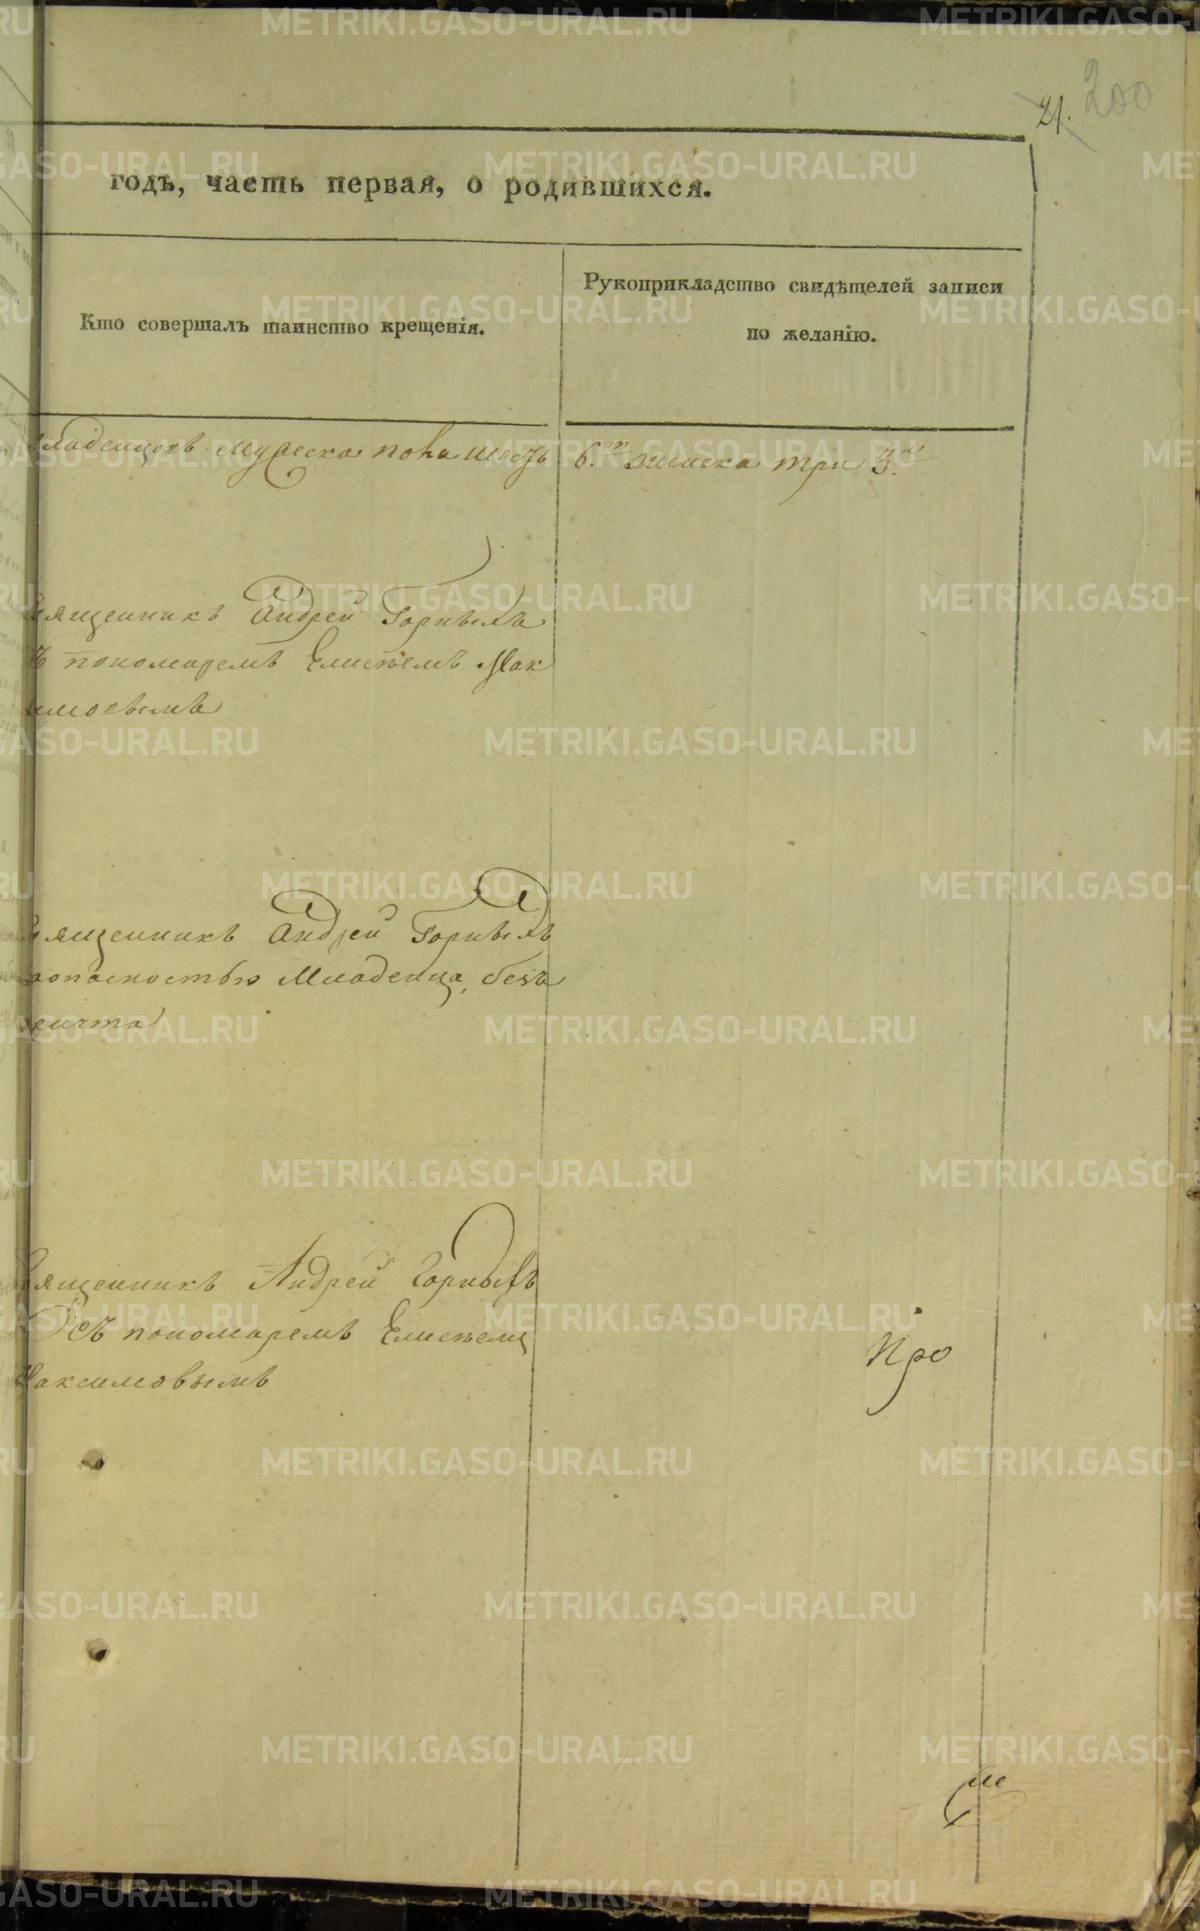 21. 200
годъ, часть первая, о родившихся.
Кто совершалъ таинство крещенія.
Рукоприкладство свидѣтелей записи
по желанію.
младенцовъ мужеска пола шесть 6. женска три 3.
Священникъ Андрей Горныхъ
съ пономаремъ Елисѣемъ Мак
симовымъ
Священникъ Андрей Горныхъ
опасностью Младенца, безъ
причта
Священникъ Андрей Горныхъ
съ пономаремъ Елисѣемъ
Максимовымъ
Про
METRIKI.GASO-URAL.RU